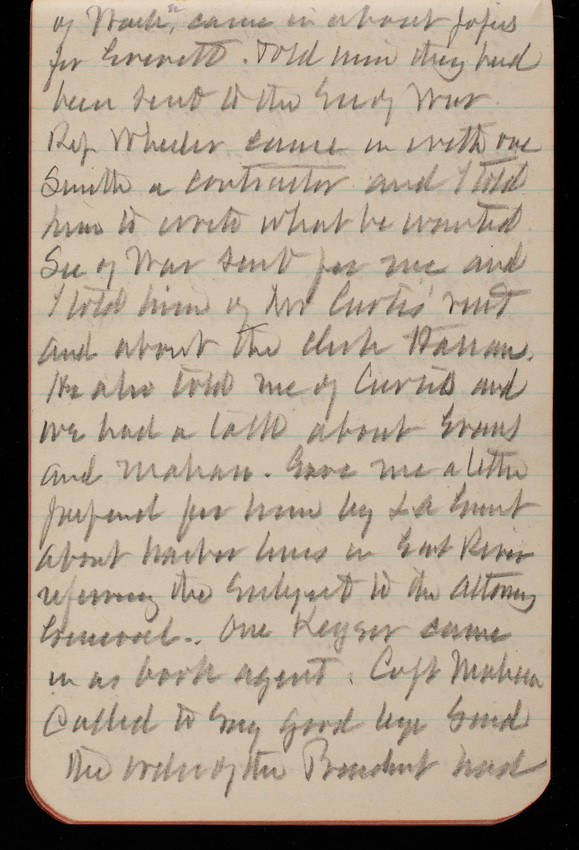 of Wash, came in about papers
for Everett. Told him they had
been sent to the Sec of War
Rep Wheeler came in with one
Smith a contractor and I told
him to write what he wanted
Sec of War sent for me and
I told him of Mr Curtis' visit
and about the clerk
He also told me of Curtis and
we had a talk about Evans
and Mahan. Gave me a letter
prepared for him by L A Grant
about harbor lines in East River
referring the subject to the Attorney
General. One Keyser came
in as book agent. Capt Mahan
Called to say good bye Said
the order of the President had